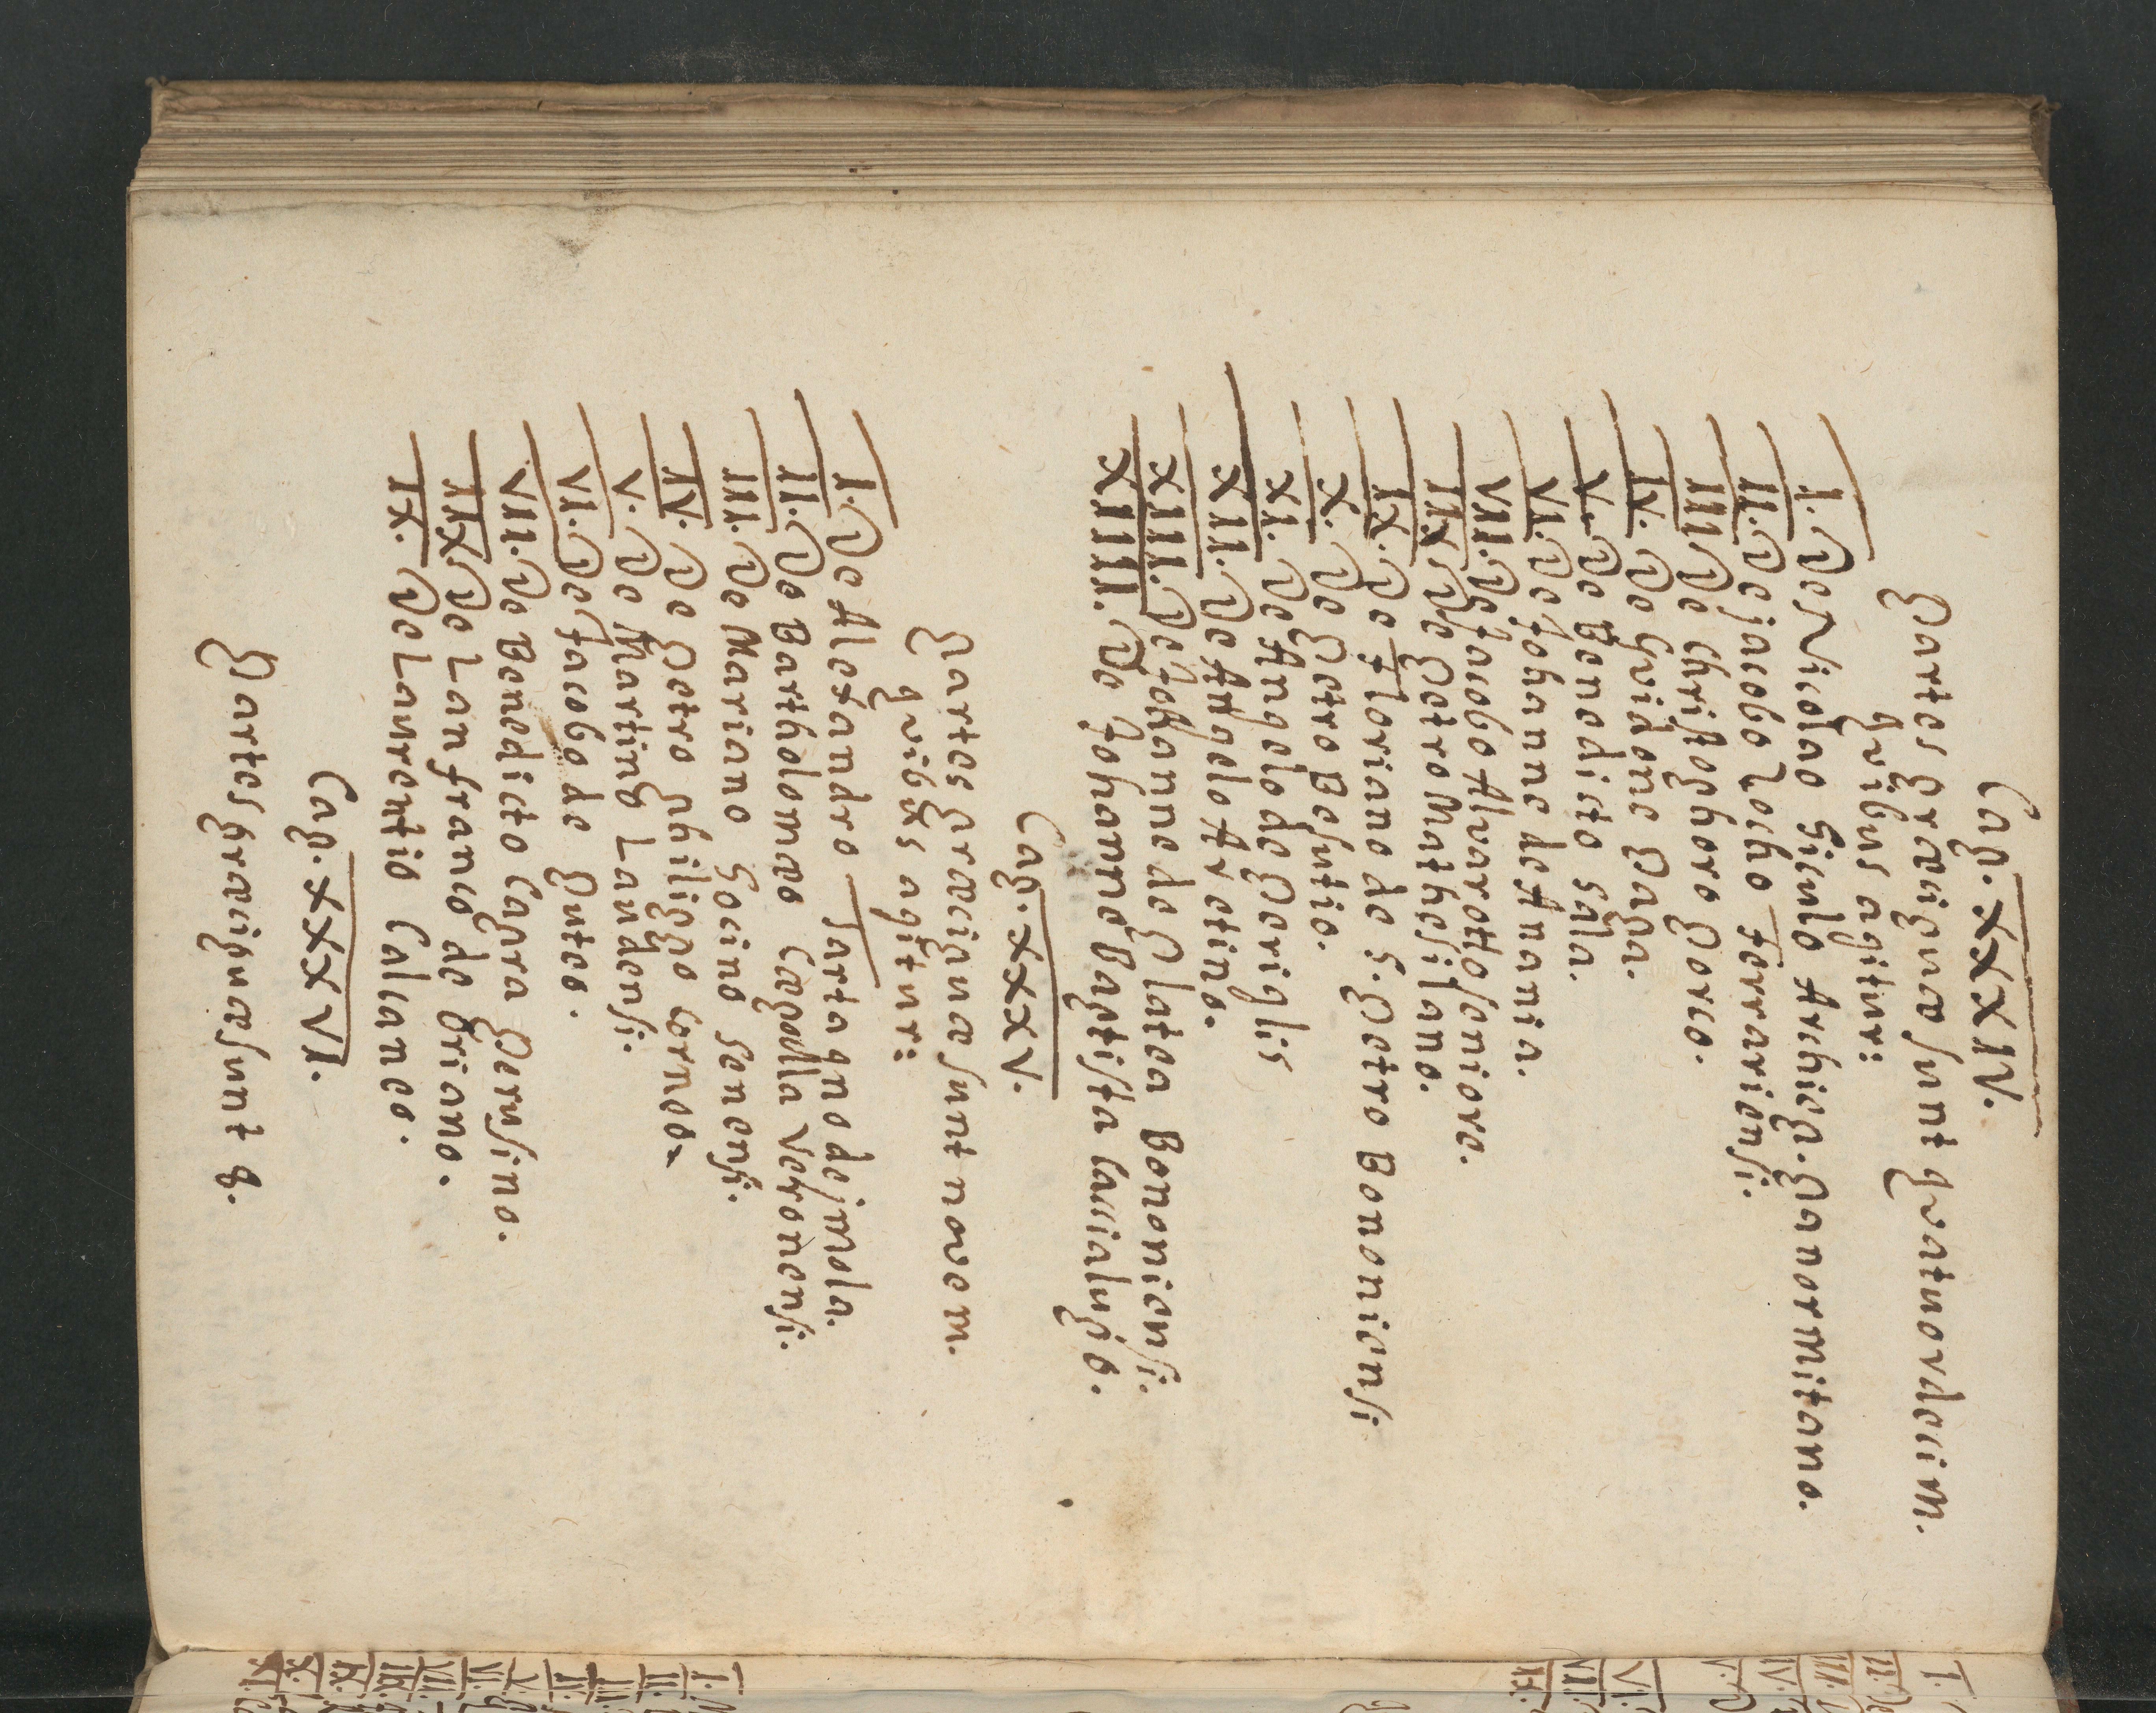 Cap. XXXIV.
Partes præcipuæ sunt quatuordecim.
quibus agitur:
I. De Nicolao Siculo Archiep. Panormitano.
II. De jacobo Zocho Ferrariensi.
III. De Christophoro Porco.
IV. De Guidone Papa.
V. De Benedicto Sala.
VI. De Johanne de Anania.
VII. De Jacobo Alvarotto seniore.
IIX. De Petro Mathesilano.
IX. De Floriano de S. Petro Bononiensi
X. De Petro Besutio.
XI. De Angelo de Periglis
XII. De Angelo Aretino.
XIII. De Johanne de Platea Bononiensi.
XIIII. De Johanne Baptista Caccialupo.
Cap. XXXV.
Partes præcipuæ sunt novem.
quibus agitur:
I. De Alexandro Tartagno de jmola.
II. De Bartholomæo Cæpolla Veronensi.
III. De Mariano Socino Senensi.
IV. De Petro Philippo Corneo
V. De Martino Laudensi.
VI. De Jacobo de Puteo.
VII. De Benedicto Capra Perusino.
IIX. De Lanfranco de Oriano.
IX. De Laurentio Calcaneo.
Cap. XXXVI.
Partes præcipuæ sunt 8.